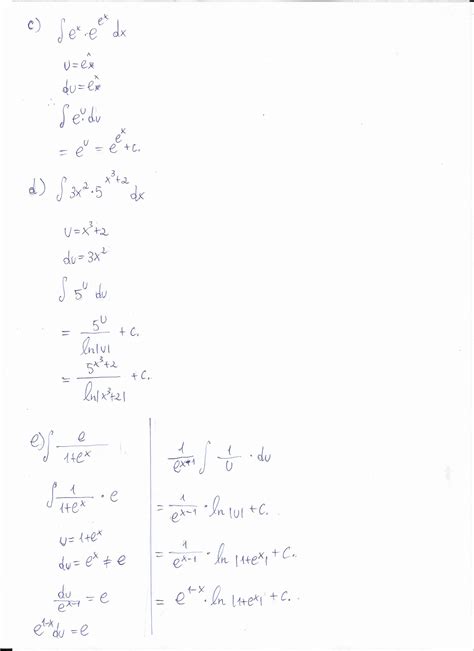 c) ∫ e^x · e^{e^x} dx
u = e^x
du = e^x
∫ e^u · du
= e^u = e^{e^x} + c.
d) ∫ 3x^2 · 5^{x^3+2} dx
u = x^3+2
du = 3x^2
∫ 5^u du
= 5^u / ln|u| + c.
= 5^{x^3+2} / ln|x^3+2| + c.
e) ∫ e / 1+e^x
∫ 1 / 1+e^x · e
u = 1+e^x
du = e^x ≠ e
du / e^{x-1} = e
e^{1-x} du = e
1 / e^{x-1} ∫ 1/u · du
= 1 / e^{x-1} · ln |u| + c.
= 1 / e^{x-1} · ln |1+e^x| + c.
= e^{1-x} · ln |1+e^x| + c.